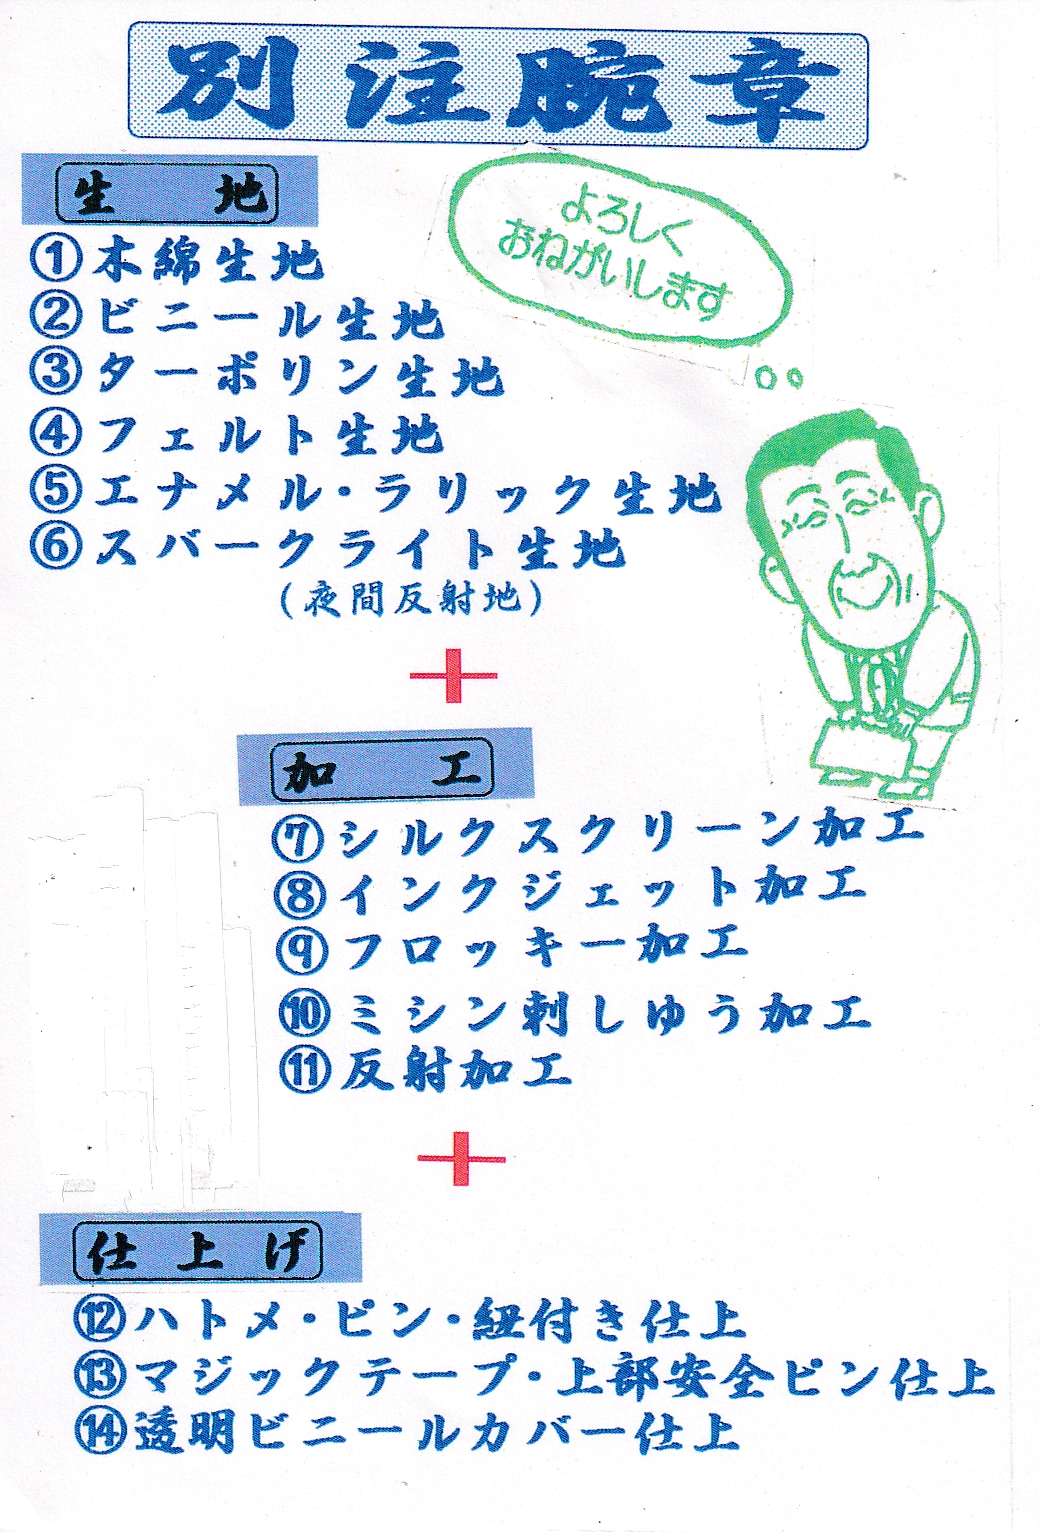 別注腕章
生地
よろしく
おねがいします
①木綿生地
②ビニール生地
③ターポリン生地
④フェルト生地
⑤エナメル・ラリック生地
⑥スパークライト生地
(夜間反射地)
＋
加工
⑦シルクスクリーン加工
⑧インクジェット加工
⑨フロッキー加工
⑩ミシン刺しゆう加工
⑪反射加工
＋
仕上げ
⑫ハトメ・ピン・紐付き仕上
⑬マジックテープ・上部安全ピン仕上
⑭透明ビニールカバー仕上